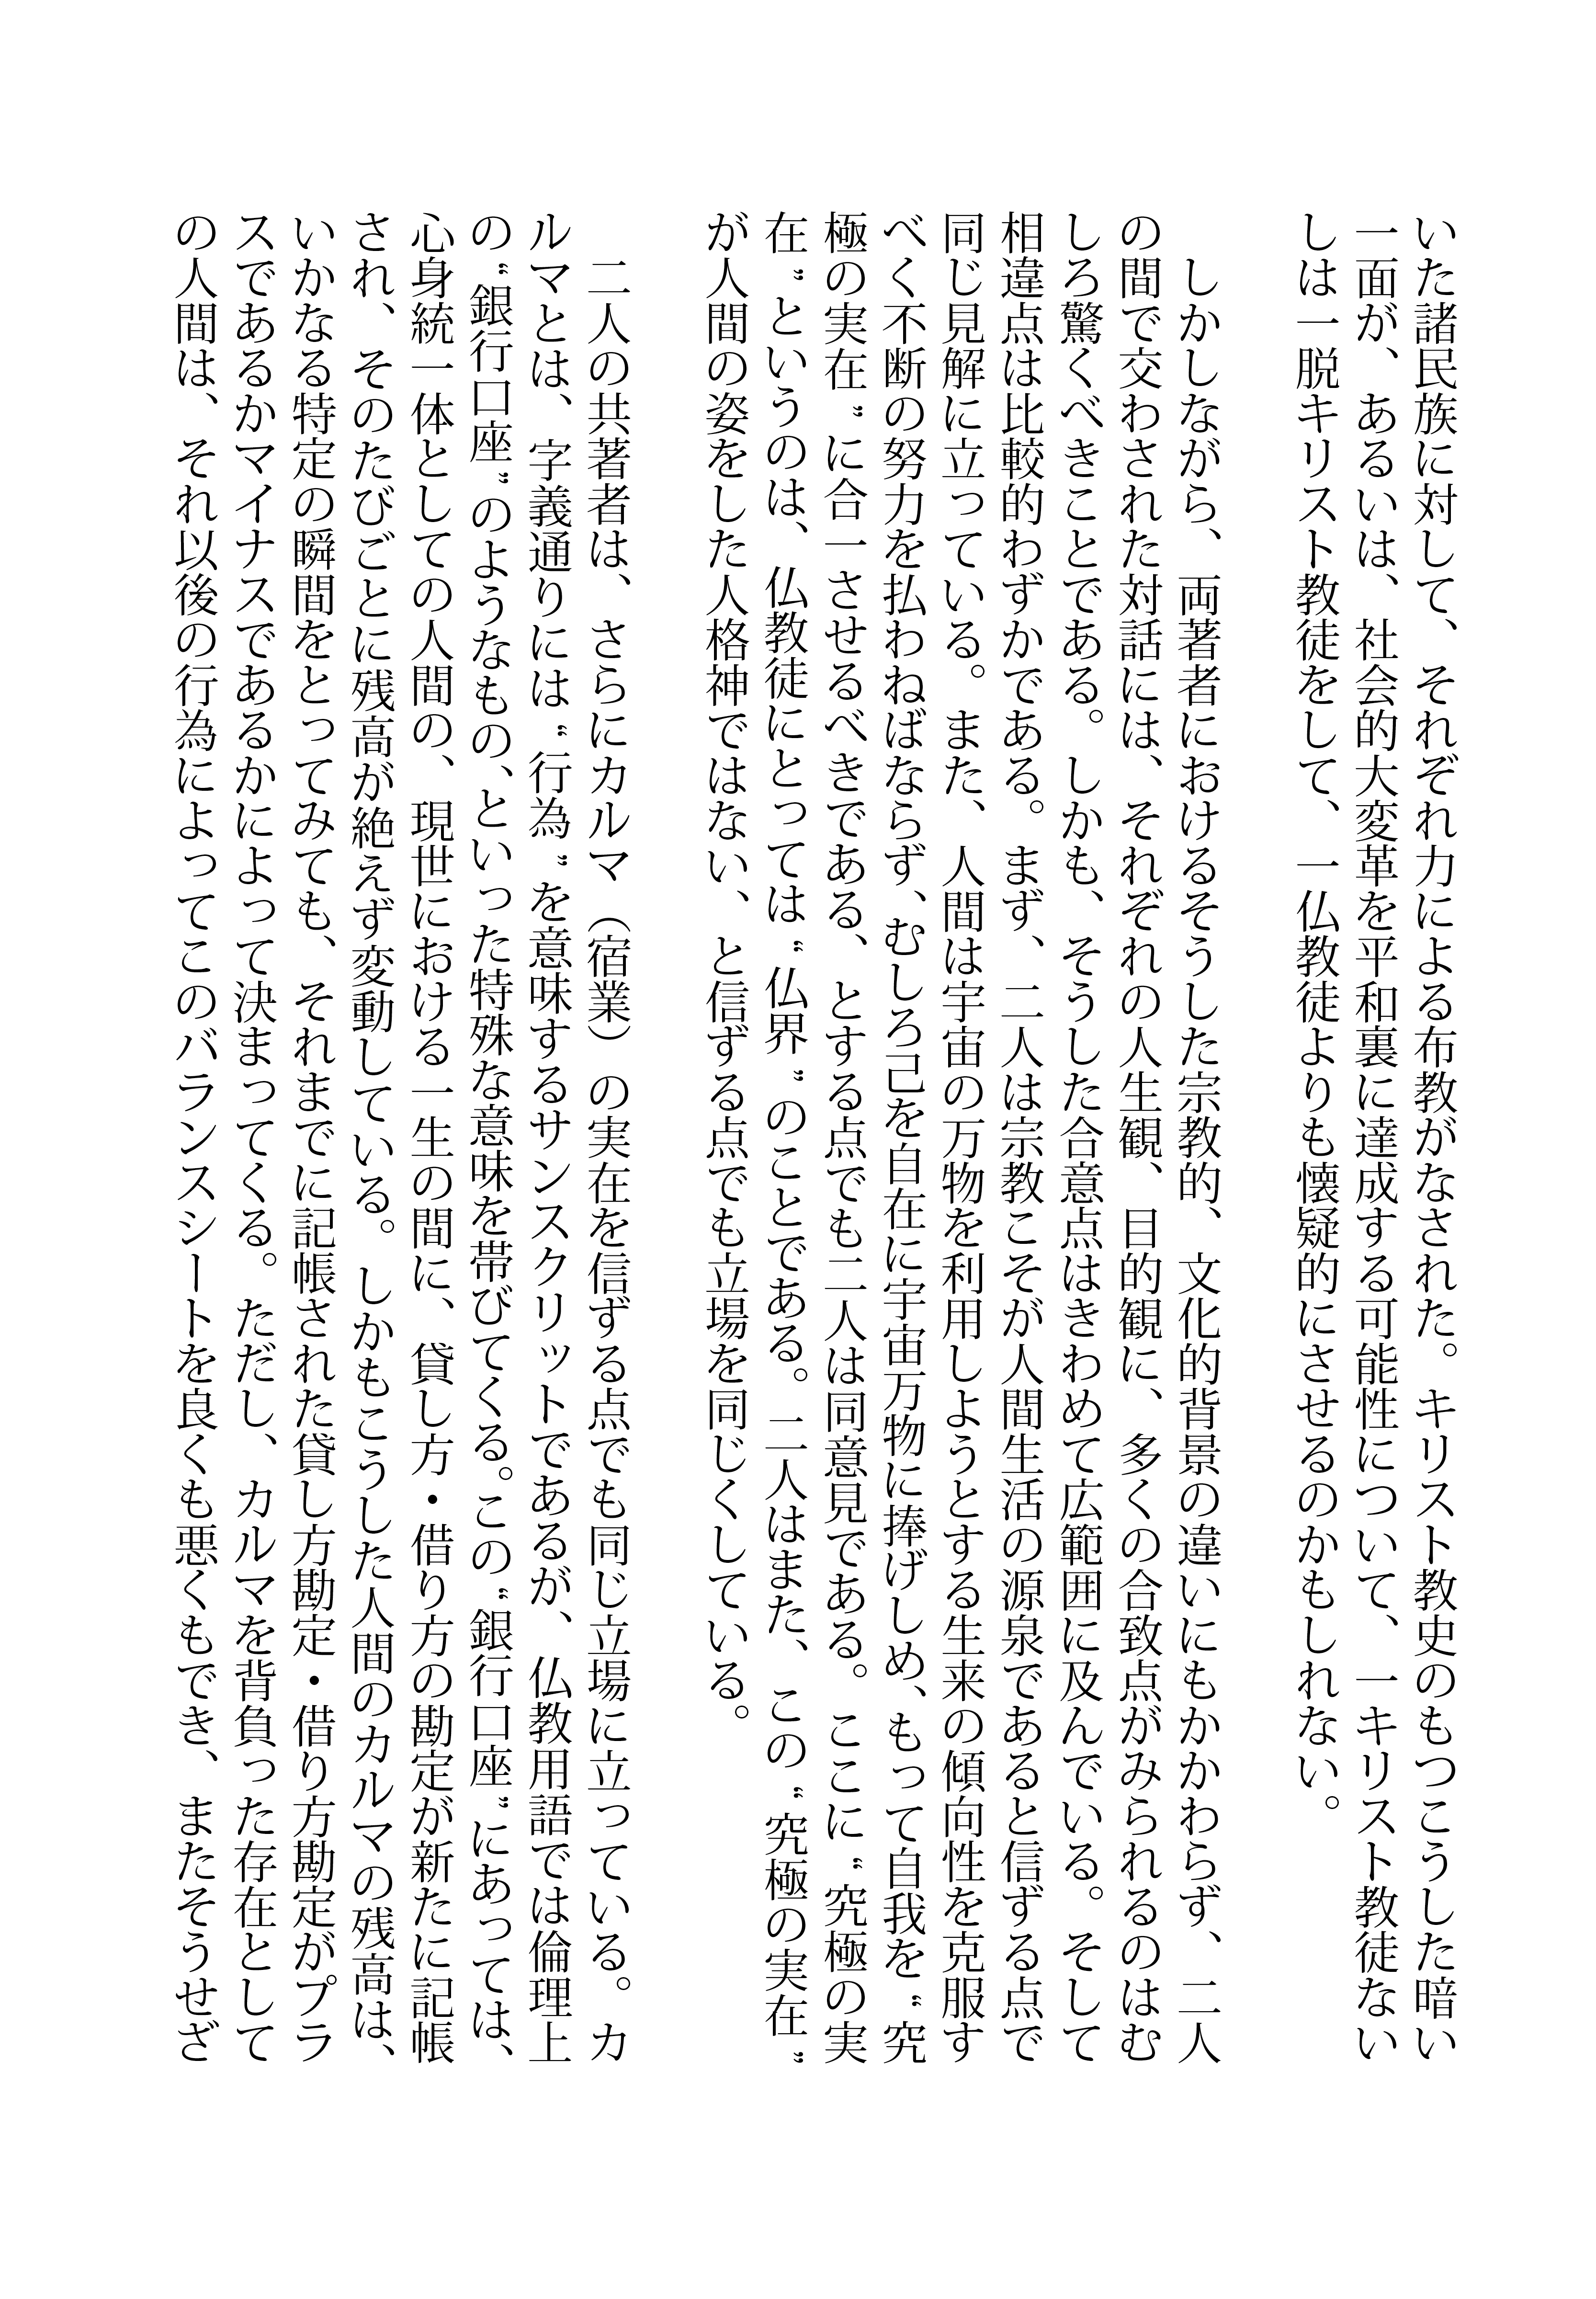 いた諸民族に対して、それぞれ力による布教がなされた。キリスト教史のもつこうした暗い
一面が、あるいは、社会的大変革を平和裏に達成する可能性について、一キリスト教徒ない
しは一脱キリスト教徒をして、一仏教徒よりも懐疑的にさせるのかもしれない。
しかしながら、両著者におけるそうした宗教的、文化的背景の違いにもかかわらず、二人
の間で交わされた対話には、それぞれの人生観、目的観に、多くの合致点がみられるのはむ
しろ驚くべきことである。しかも、そうした合意点はきわめて広範囲に及んでいる。そして
相違点は比較的わずかである。まず、二人は宗教こそが人間生活の源泉であると信ずる点で
同じ見解に立っている。また、人間は宇宙の万物を利用しようとする生来の傾向性を克服す
べく不断の努力を払わねばならず、むしろ己を自在に宇宙万物に捧げしめ、もって自我を“究
極の実在”に合一させるべきである、とする点でも二人は同意見である。ここに“究極の実
在”というのは、仏教徒にとっては“仏界”のことである。二人はまた、この“究極の実在”
が人間の姿をした人格神ではない、と信ずる点でも立場を同じくしている。
二人の共著者は、さらにカルマ（宿業）の実在を信ずる点でも同じ立場に立っている。カ
ルマとは、字義通りには“行為”を意味するサンスクリットであるが、仏教用語では倫理上
の“銀行口座”のようなもの、といった特殊な意味を帯びてくる。この“銀行口座”にあっては、
心身統一体としての人間の、現世における一生の間に、貸し方・借り方の勘定が新たに記帳
され、そのたびごとに残高が絶えず変動している。しかもこうした人間のカルマの残高は、
いかなる特定の瞬間をとってみても、それまでに記帳された貸し方勘定・借り方勘定がプラ
スであるかマイナスであるかによって決まってくる。ただし、カルマを背負った存在として
の人間は、それ以後の行為によってこのバランスシートを良くも悪くもでき、またそうせざ